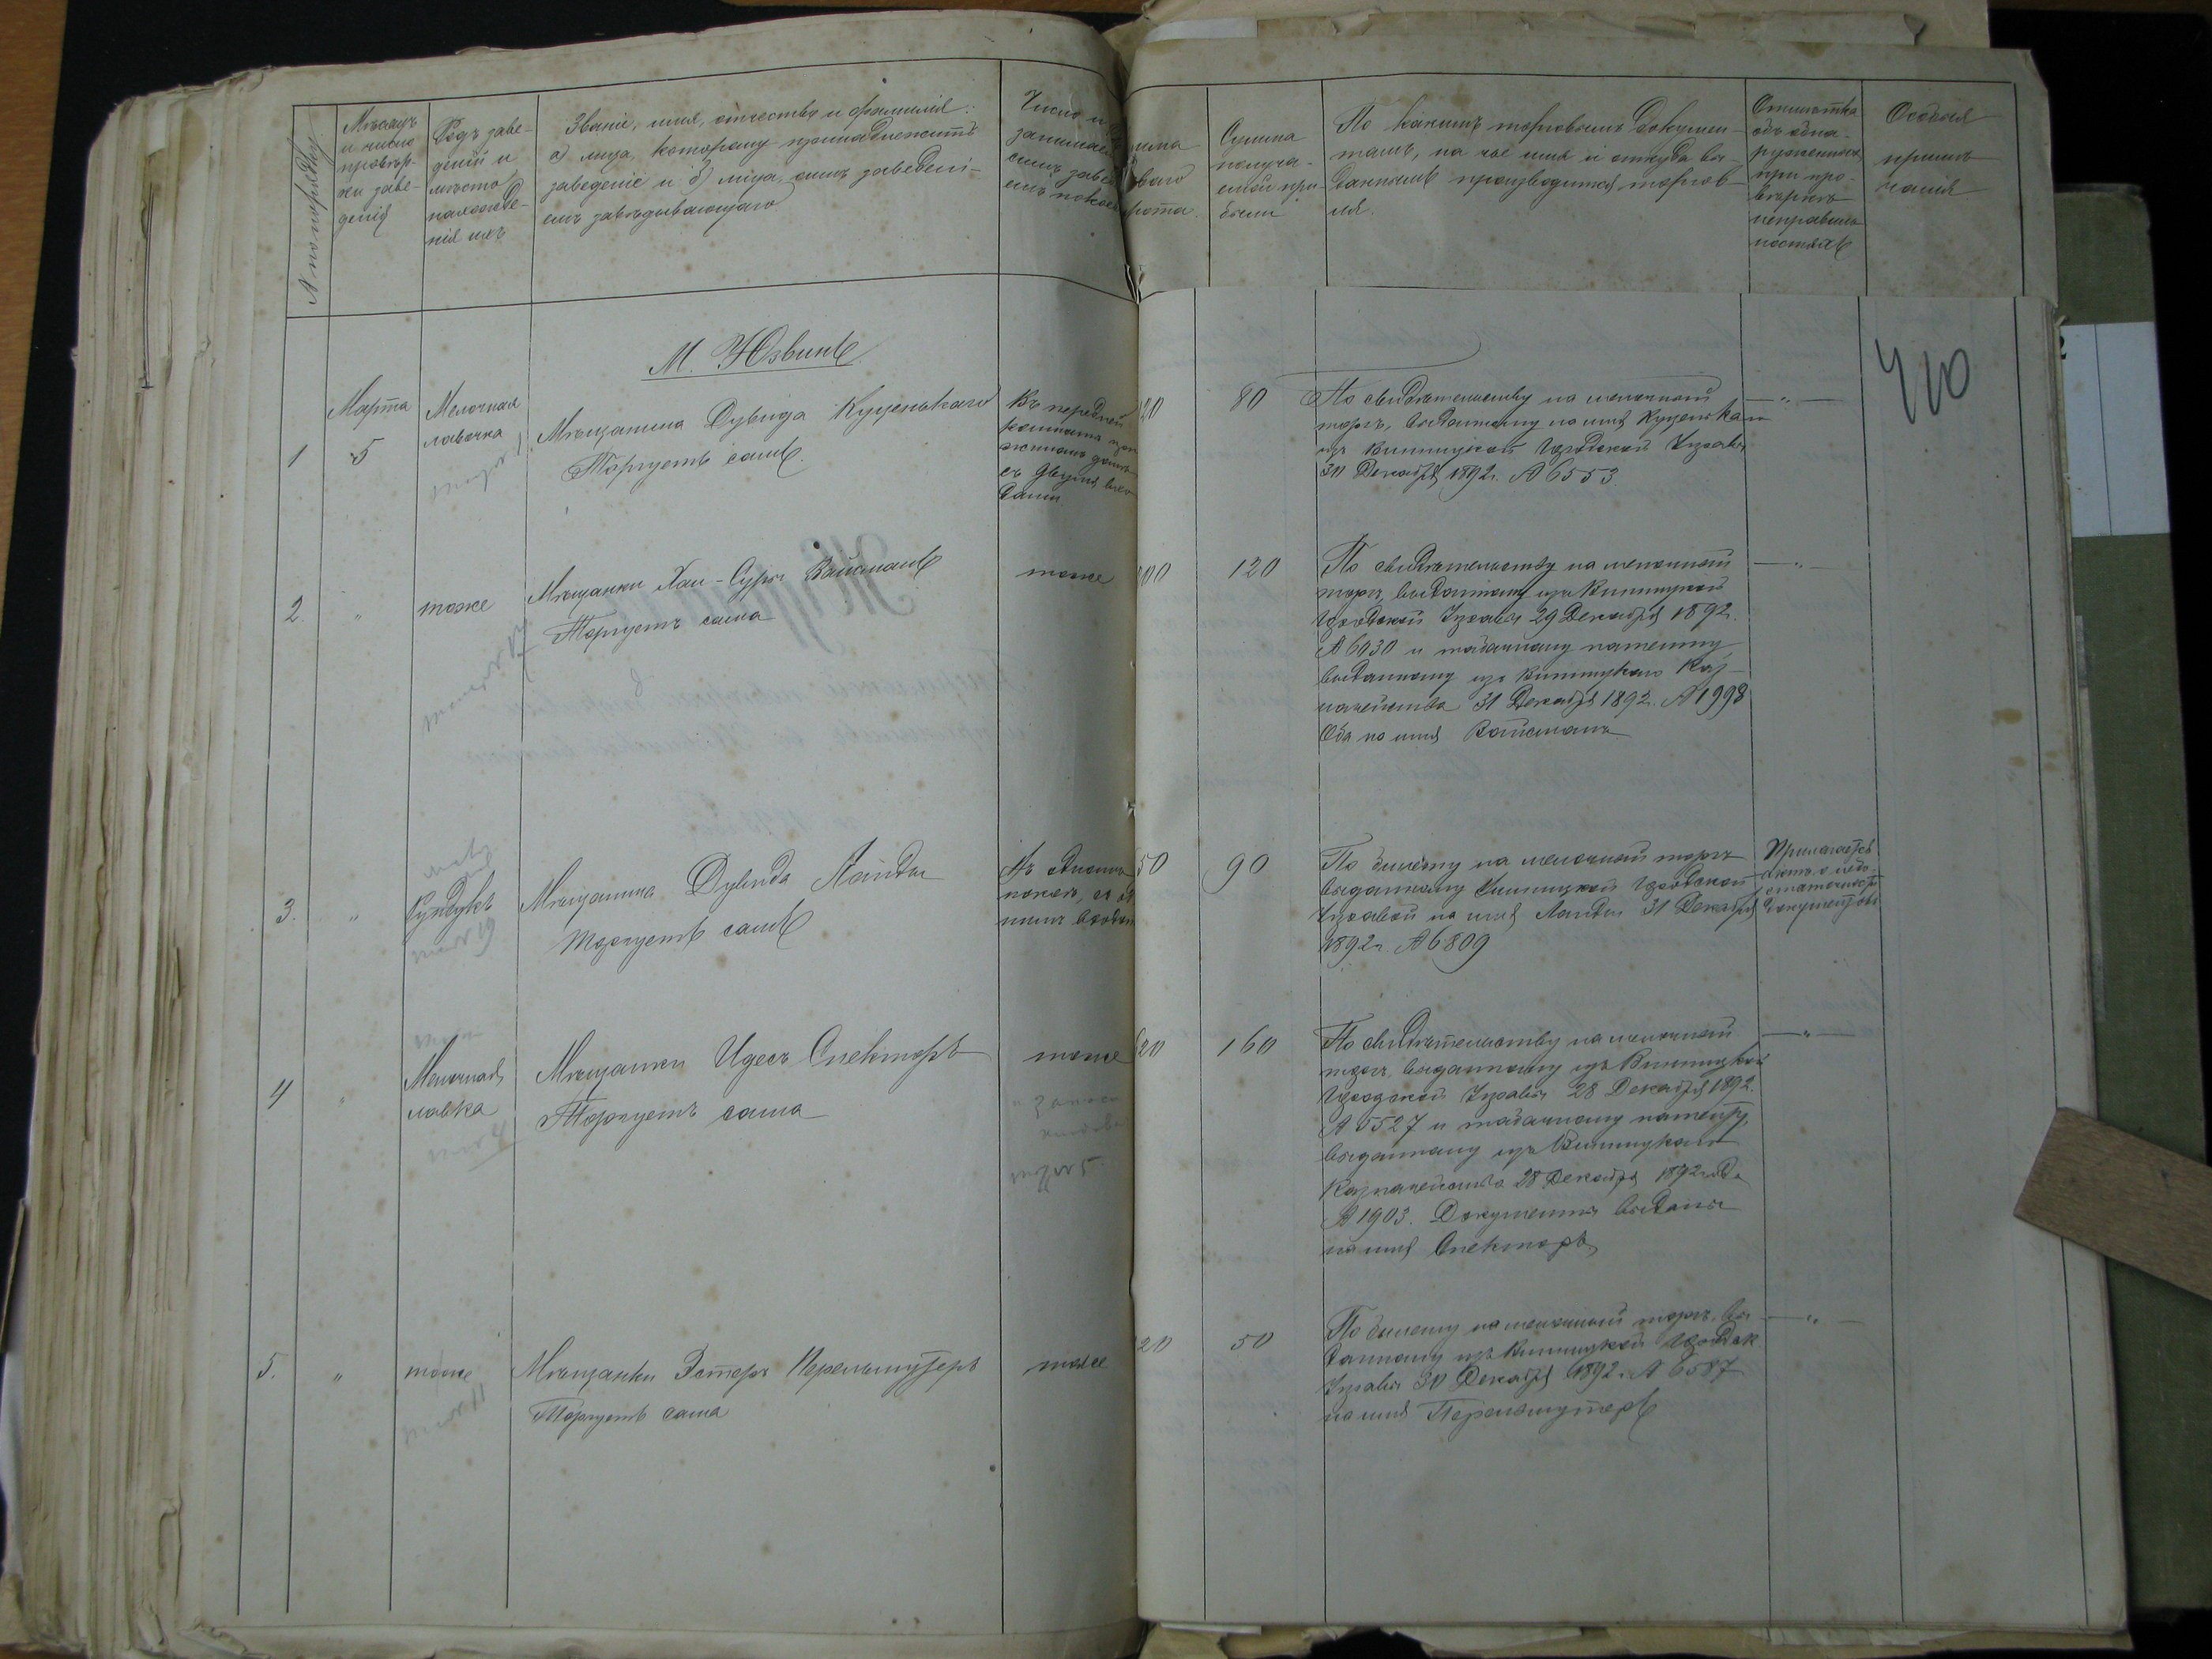 N по порядку
Мѣсяцъ
и число
провѣр-
ки заве-
денія
Родъ заве-
деній и
мѣсто
нахожде-
нія ихъ
Званіе, имя, отчество и фамилія:
а) лица, которому принадлежитъ
заведеніе и б) лица, симъ заведені-
емъ завѣдывающаго.
Число и
занимае
симъ завед
емъ покое
Сумма
получа-
емой при-
были
По какимъ торговымъ докумен-
тамъ, на чье имя и откуда вы-
даннымъ производится торгов-
ля.
Отмѣтка
объ обна-
руженныхъ
при про-
вѣркѣ
неправиль
ностяхъ
Особыя
примѣ
чанія
М. Юзвинъ
410
1
Марта
5
Мелочная
лавочка
Мѣщанина Дувида Куценькаго
Торгуетъ самъ.
Въ передней
комнатѣ
с двумя вхо
дами
20
80
По свидѣтельству на мелочной
торгъ, выданному на имя Куценька
изъ Винницкой Городской Управы
30 Декабря 1892 г. N 6553.
— " —
2
"
тоже
Мѣщанки Хаи-Суры Вайсманъ
Торгуетъ сама
тоже
00
120
По свидѣтельству на мелочной
торгъ, выданному изъ Винницкой
Городской Управы 29 Декабря 1892 г.
N 6030 и табачному патенту,
выданному изъ Винницкаго Каз-
начейства 31 Декабря 1892 г. N 1998
Оба на имя Вайсманъ
— " —
3.
"
Рундукъ
Мѣщанина Дувида Ланды
торгуетъ самъ
Въ одномъ
покоѣ, съ од
нимъ входом
50
90
По билету на мелочной торгъ
выданному Винницкой Городской
Управой на имя Ланды 31 Декабря
1892 г. N 6809
Прилагается
актъ о недо-
статочност
документовъ
4
"
Мелочная
лавка
Мѣщанки Идесъ Спекторъ
Торгуетъ сама
тоже
20
160
По свидѣтельству на мелочной
торгъ, выданному изъ Винницкой
Городской Управы 28 Декабря 1892 г.
N 5527 и табачному патенту,
выданному изъ Винницкаго
Казначейства 28 Декабря 1892 года
N 1903. Документы выданы
на имя Спекторъ
— " —
5.
"
тоже
Мѣщанки Эстеръ Перельмутеръ
Торгуетъ сама
тоже
20
50
По билету на мелочный торгъ, вы
данному изъ Винницкой Городск
Управы 30 Декабря 1892 г. N 6587
на имя Перельмутеръ
— " —